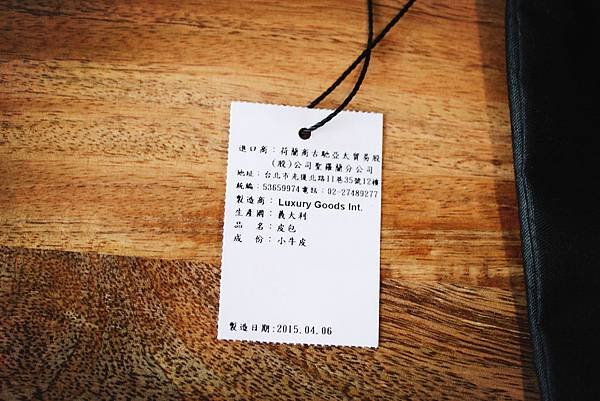 進口商：荷蘭商古馳亞太貿易股
(股)公司聖羅蘭分公司
地址：台北市光復北路11巷35號12樓
統編：53659974電話：02-27489277
製造商： Luxury Goods Int.
生產國：義大利
品　名：皮包
成　份：小牛皮
製造日期:2015.04.06